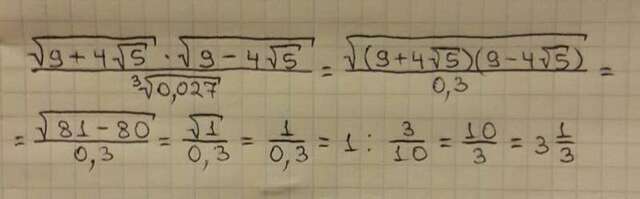 √(9 + 4√5) · √(9 − 4√5) / ∛0,027 = √((9 + 4√5)(9 − 4√5)) / 0,3 =
= √(81 − 80) / 0,3 = √1 / 0,3 = 1 / 0,3 = 1 : 3/10 = 10/3 = 3 1/3